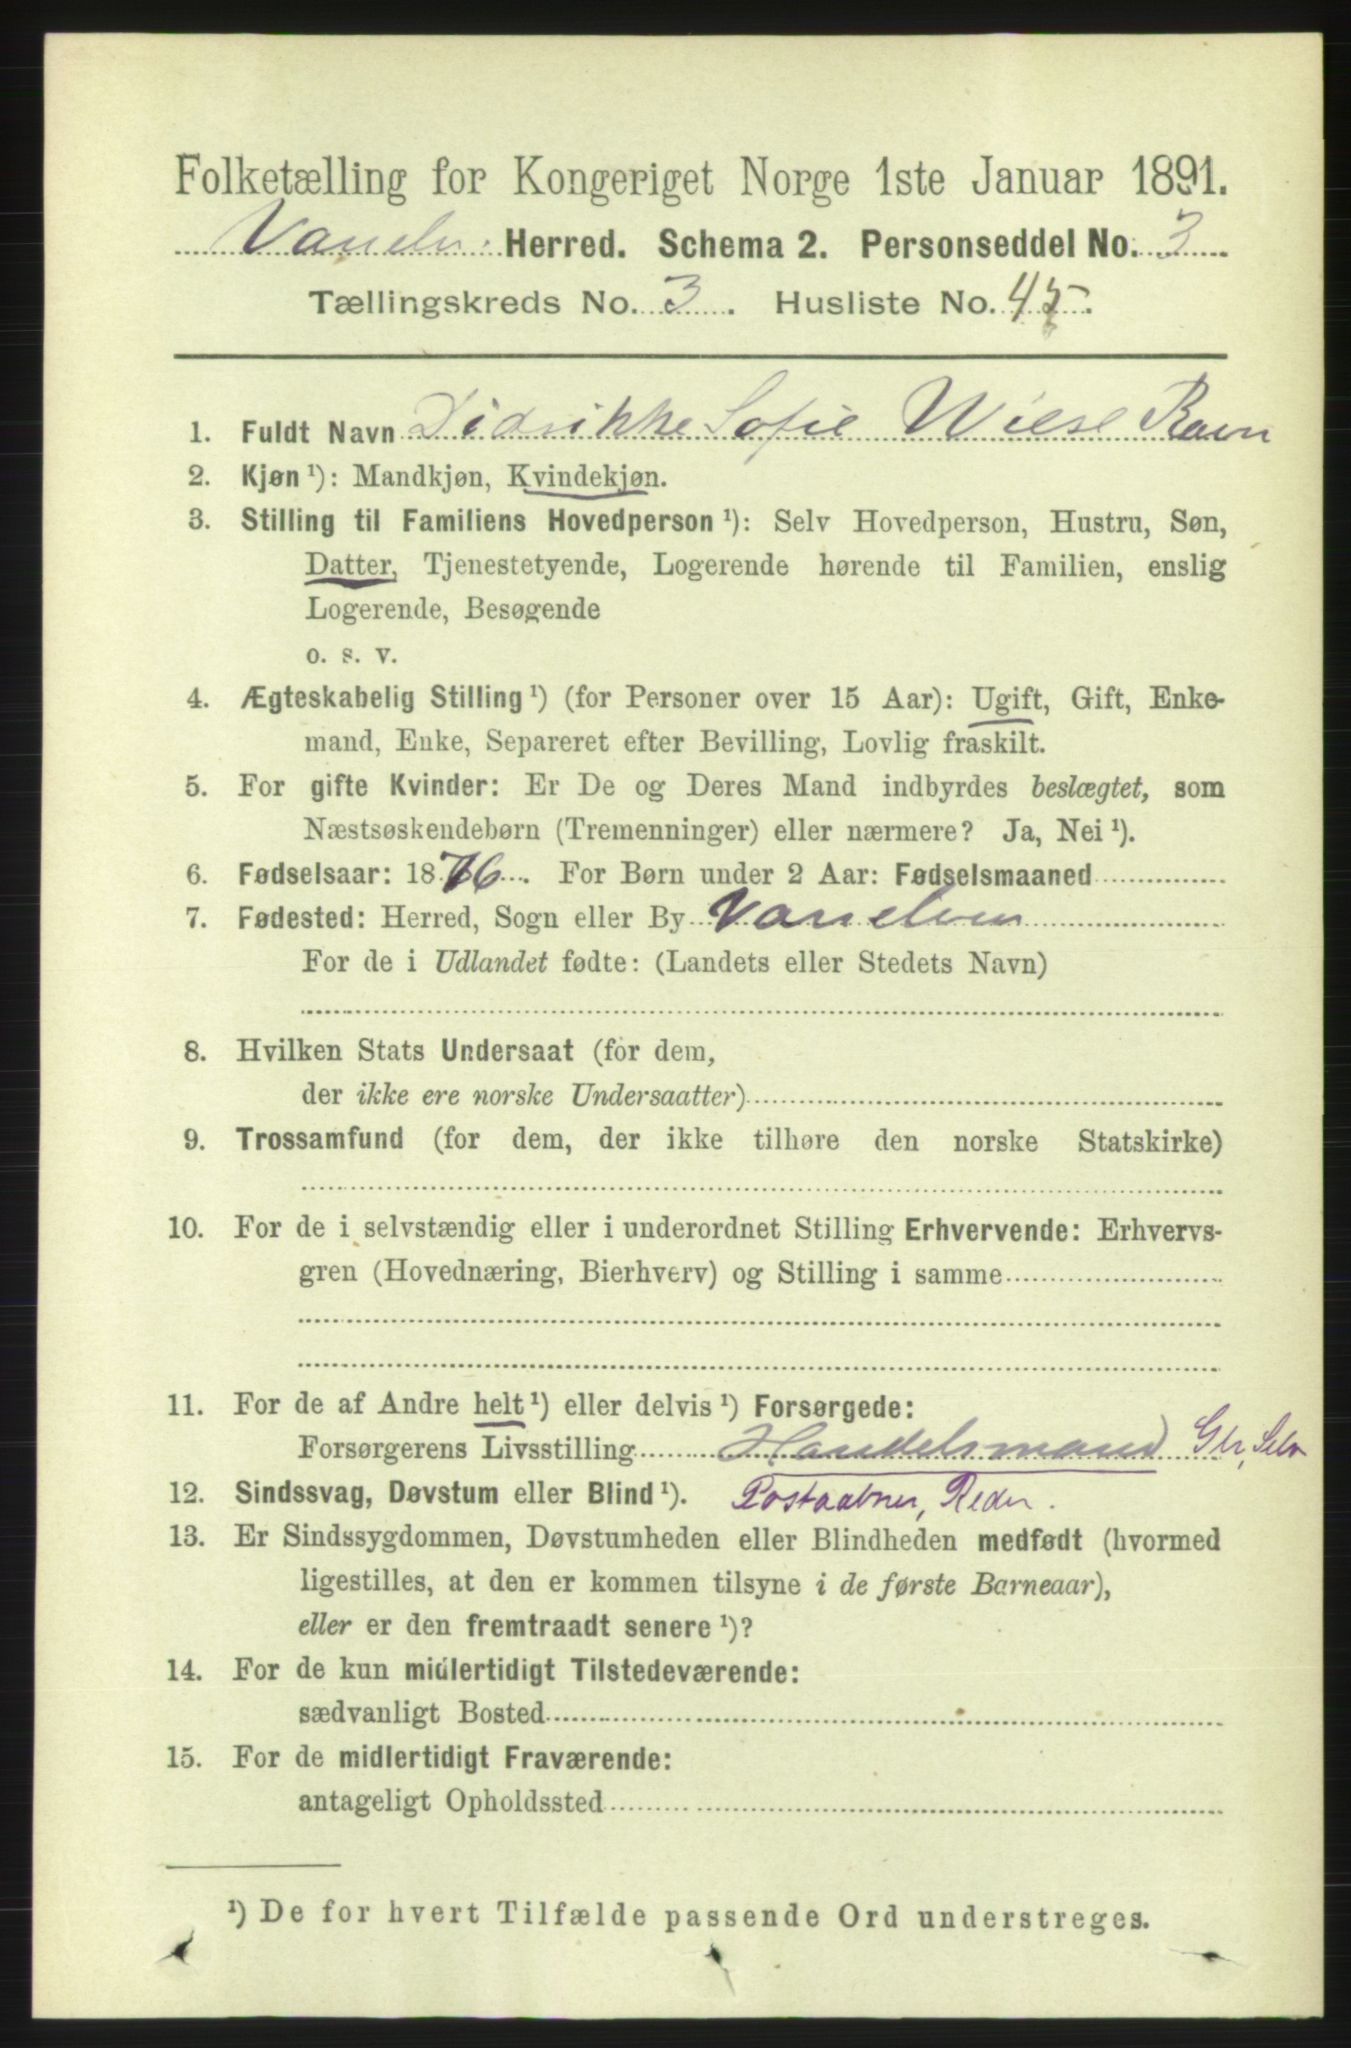 Folketælling for Kongeriget Norge 1ste Januar 1891.
Vanelv. Herred. Schema 2. Personseddel No. 3
Tællingskreds No. 3. Husliste No. 45.
1. Fuldt Navn Didrikke Sofie Wiese Ravn
2. Kjøn ¹): Mandkjøn, Kvindekjøn.
3. Stilling til Familiens Hovedperson ¹): Selv Hovedperson, Hustru, Søn,
Datter, Tjenestetyende, Logerende hørende til Familien, enslig
Logerende, Besøgende
o. s. v.
4. Ægteskabelig Stilling ¹) (for Personer over 15 Aar): Ugift, Gift, Enke-
mand, Enke, Separeret efter Bevilling, Lovlig fraskilt.
5. For gifte Kvinder: Er De og Deres Mand indbyrdes beslægtet, som
Næstsøskendebørn (Tremenninger) eller nærmere? Ja, Nei ¹).
6. Fødselsaar: 1876. For Børn under 2 Aar: Fødselsmaaned
7. Fødested: Herred, Sogn eller By Vanelven
For de i Udlandet fødte: (Landets eller Stedets Navn)
8. Hvilken Stats Undersaat (for dem,
der ikke ere norske Undersaatter)
9. Trossamfund (for dem, der ikke tilhøre den norske Statskirke)
10. For de i selvstændig eller i underordnet Stilling Erhvervende: Erhvervs-
gren (Hovednæring, Bierhverv) og Stilling i samme
11. For de af Andre helt ¹) eller delvis ¹) Forsørgede:
Forsørgerens Livsstilling Handelsmand Gbr, Selv
12. Sindssvag, Døvstum eller Blind ¹). Postaabner, Reder.
13. Er Sindssygdommen, Døvstumheden eller Blindheden medfødt (hvormed
ligestilles, at den er kommen tilsyne i de første Barneaar),
eller er den fremtraadt senere ¹)?
14. For de kun midlertidigt Tilstedeværende:
sædvanligt Bosted
15. For de midlertidigt Fraværende:
antageligt Opholdssted
¹) De for hvert Tilfælde passende Ord understreges.